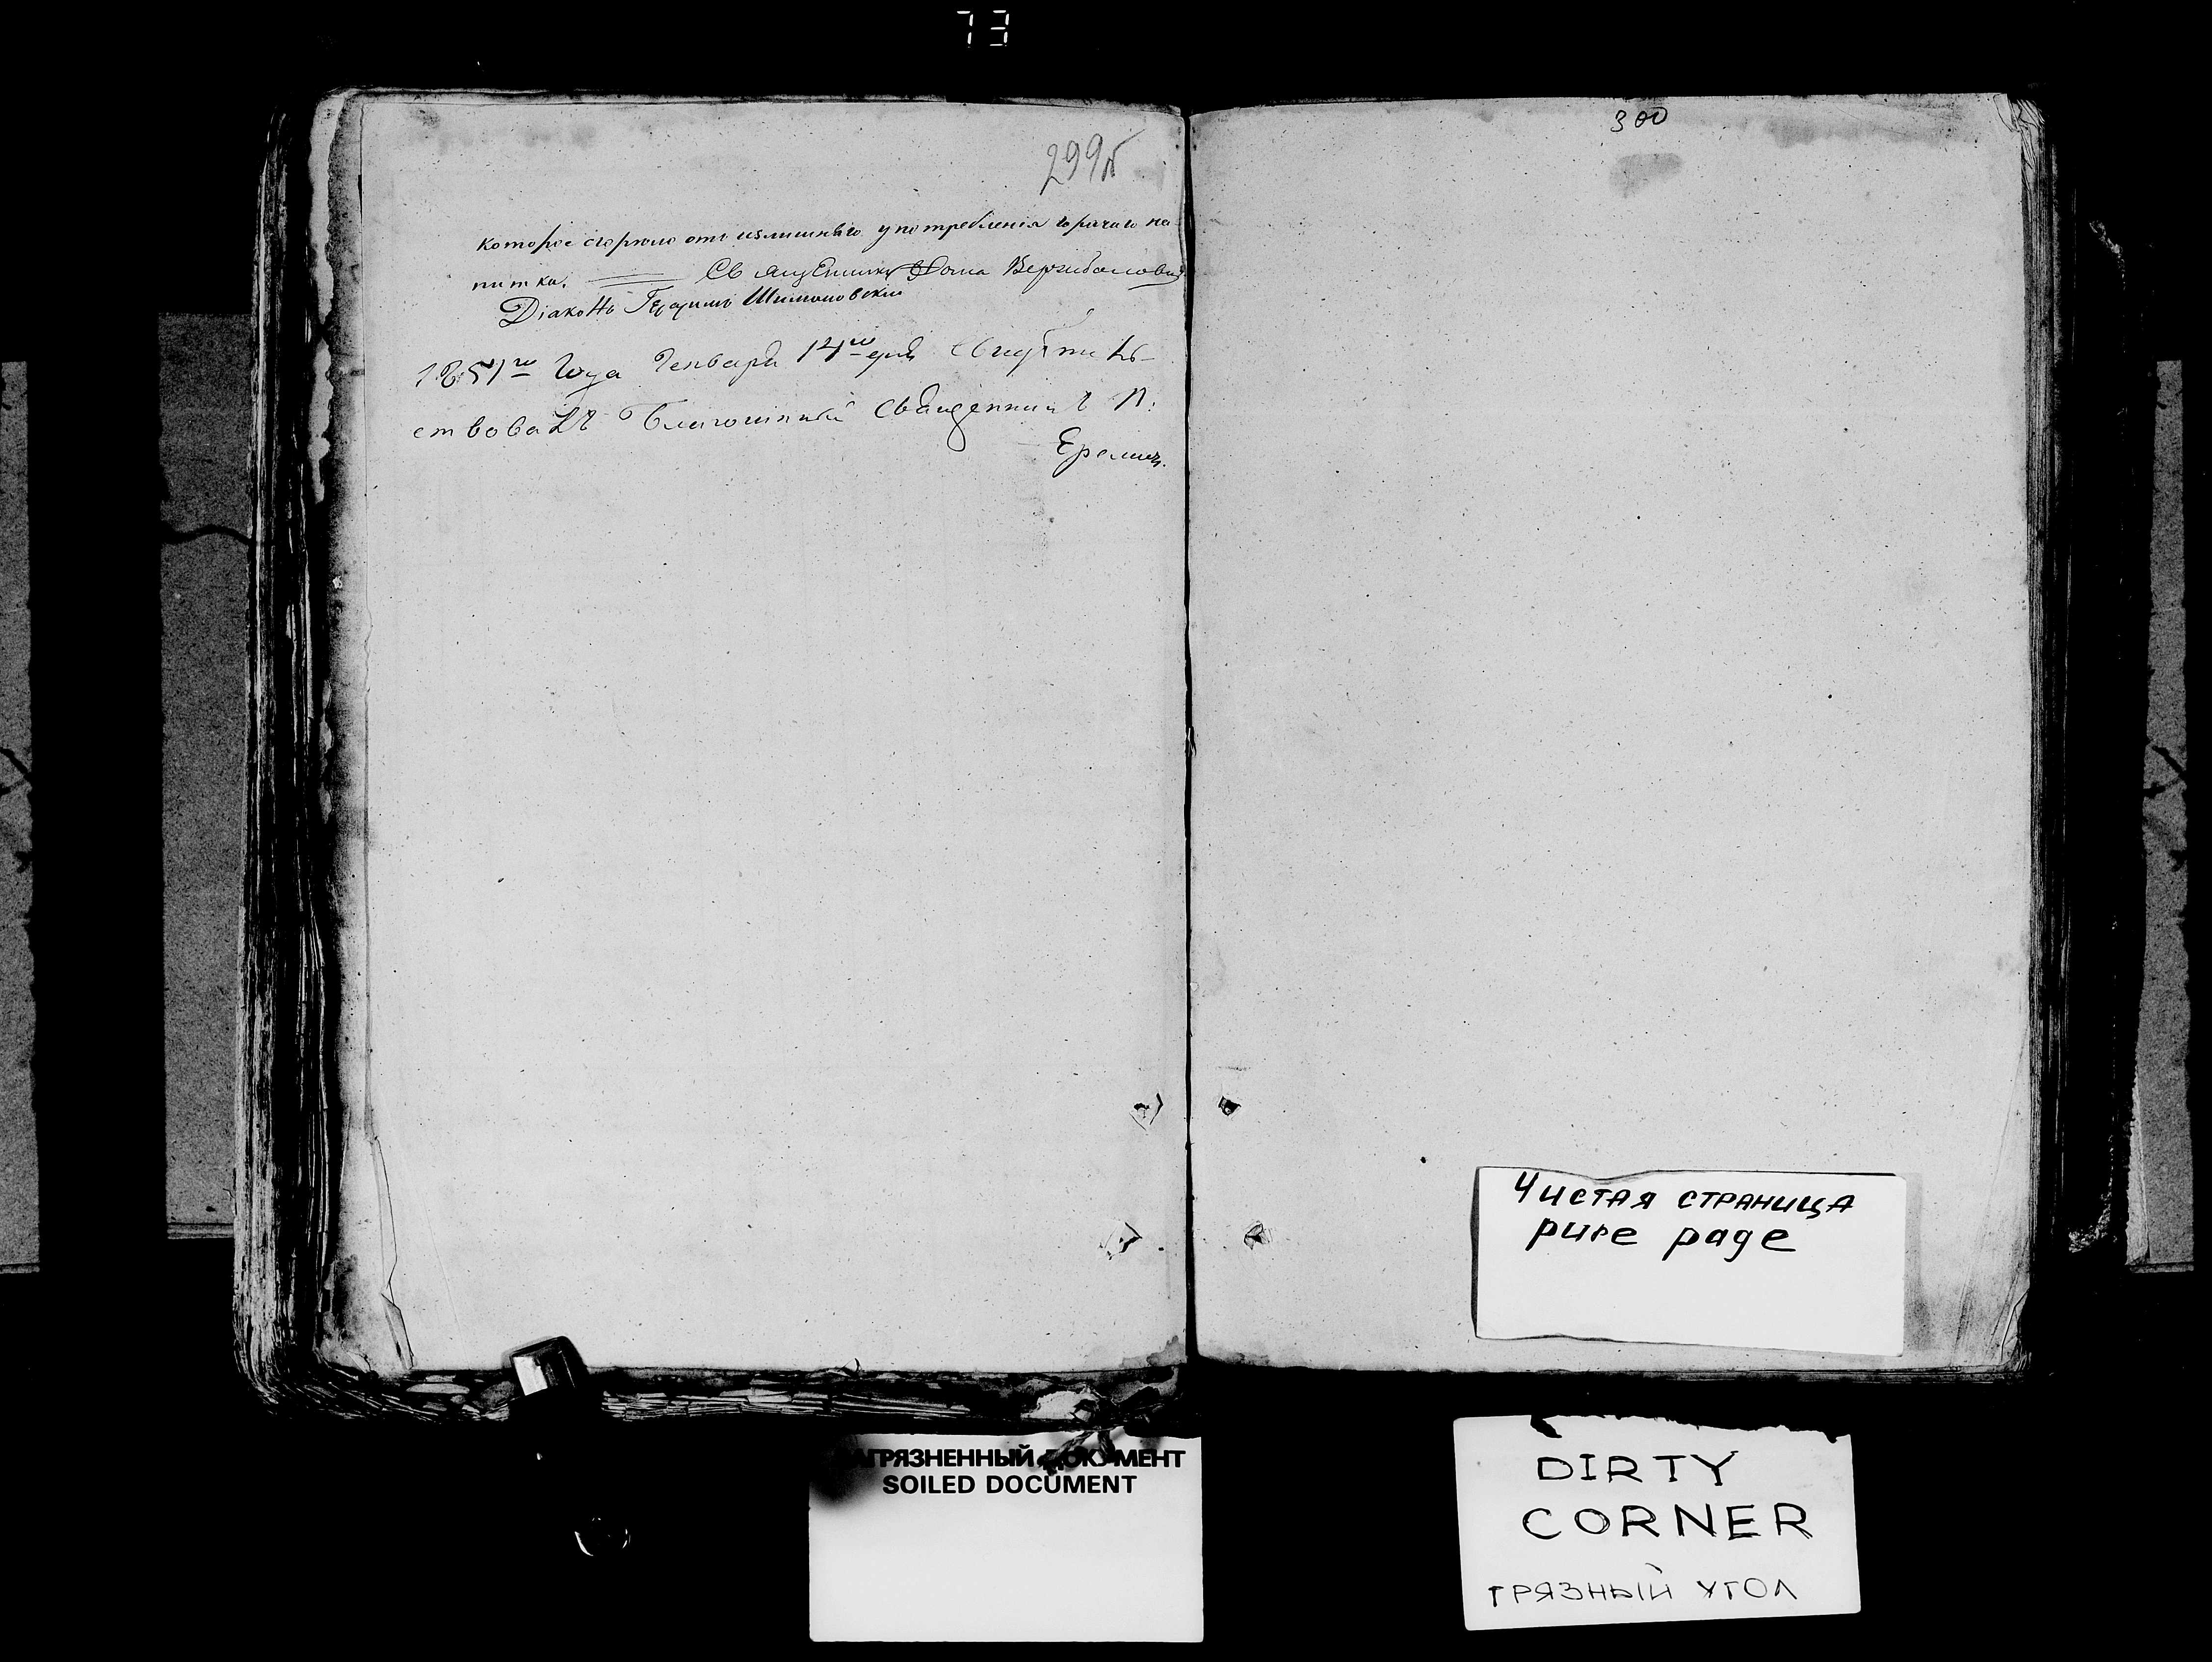 73
299б
которое сгорело отъ излишняго употребленія горячаго на-
питка. Священникъ Фома
Діаконъ Герасимъ Шимановскій
1851го года Генваря 14го дня свидѣтель-
ствовалъ Благочинный Священникъ П:
Еремич.
300
Чистая страница
pure page
АГРЯЗНЕННЫЙ ДОКУМЕНТ
SOILED DOCUMENT
DIRTY
CORNER
ГРЯЗНЫЙ УГОЛ